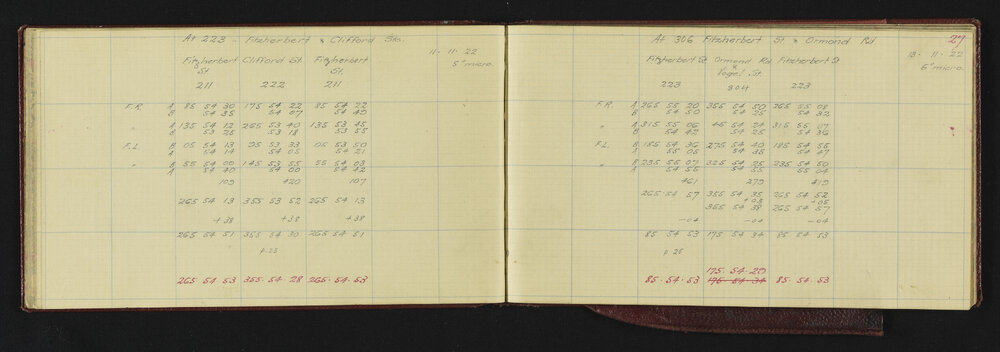 At 223 - Fitzherbert & Clifford Sts.
11 - 11 - 22
Fitzherbert Clifford St. Fitzherbert
5" micro.
St. St.
211 222 211
F.R. A 85 54 30 175 54 22 85 54 22
B 54 35 54 07 54 40
" A 135 54 12 265 53 40 135 53 45
B 53 25 53 18 53 55
F.L. A 05 54 13 95 53 33 05 53 50
B 54 14 54 05 54 21
" A 55 54 00 145 53 55 55 54 03
B 54 40 54 00 54 42
109 420 107
265 54 13 355 53 52 265 54 13
+38 +38 +38
265 54 51 355 54 30 265 54 51
p 23
265. 54. 53 355. 54. 28 265. 54. 53
27
At 306 Fitzherbert St & Ormond Rd
13 - 11 - 22
Fitzherbert St Ormond Rd Fitzherbert St
6" micro.
& Vogel St.
223 304 223
F.R. A 265 55 20 355 54 50 265 55 08
B 54 50 54 25 54 32
" A 315 55 06 45 54 24 315 55 07
B 54 42 54 25 54 36
F.L. A 185 54 36 275 54 40 185 54 55
B 55 05 54 35 54 47
" A 235 55 07 325 54 25 235 54 50
B 54 55 54 55 55 04
461 279 419
265 54 57 355 54 35 265 54 52
+03 +05
355 54 38 265 54 57
-04 -04 -04
85 54 53 175 54 34 85 54 53
p 25
175. 54. 20
85. 54. 53 175 54 34 85. 54. 53